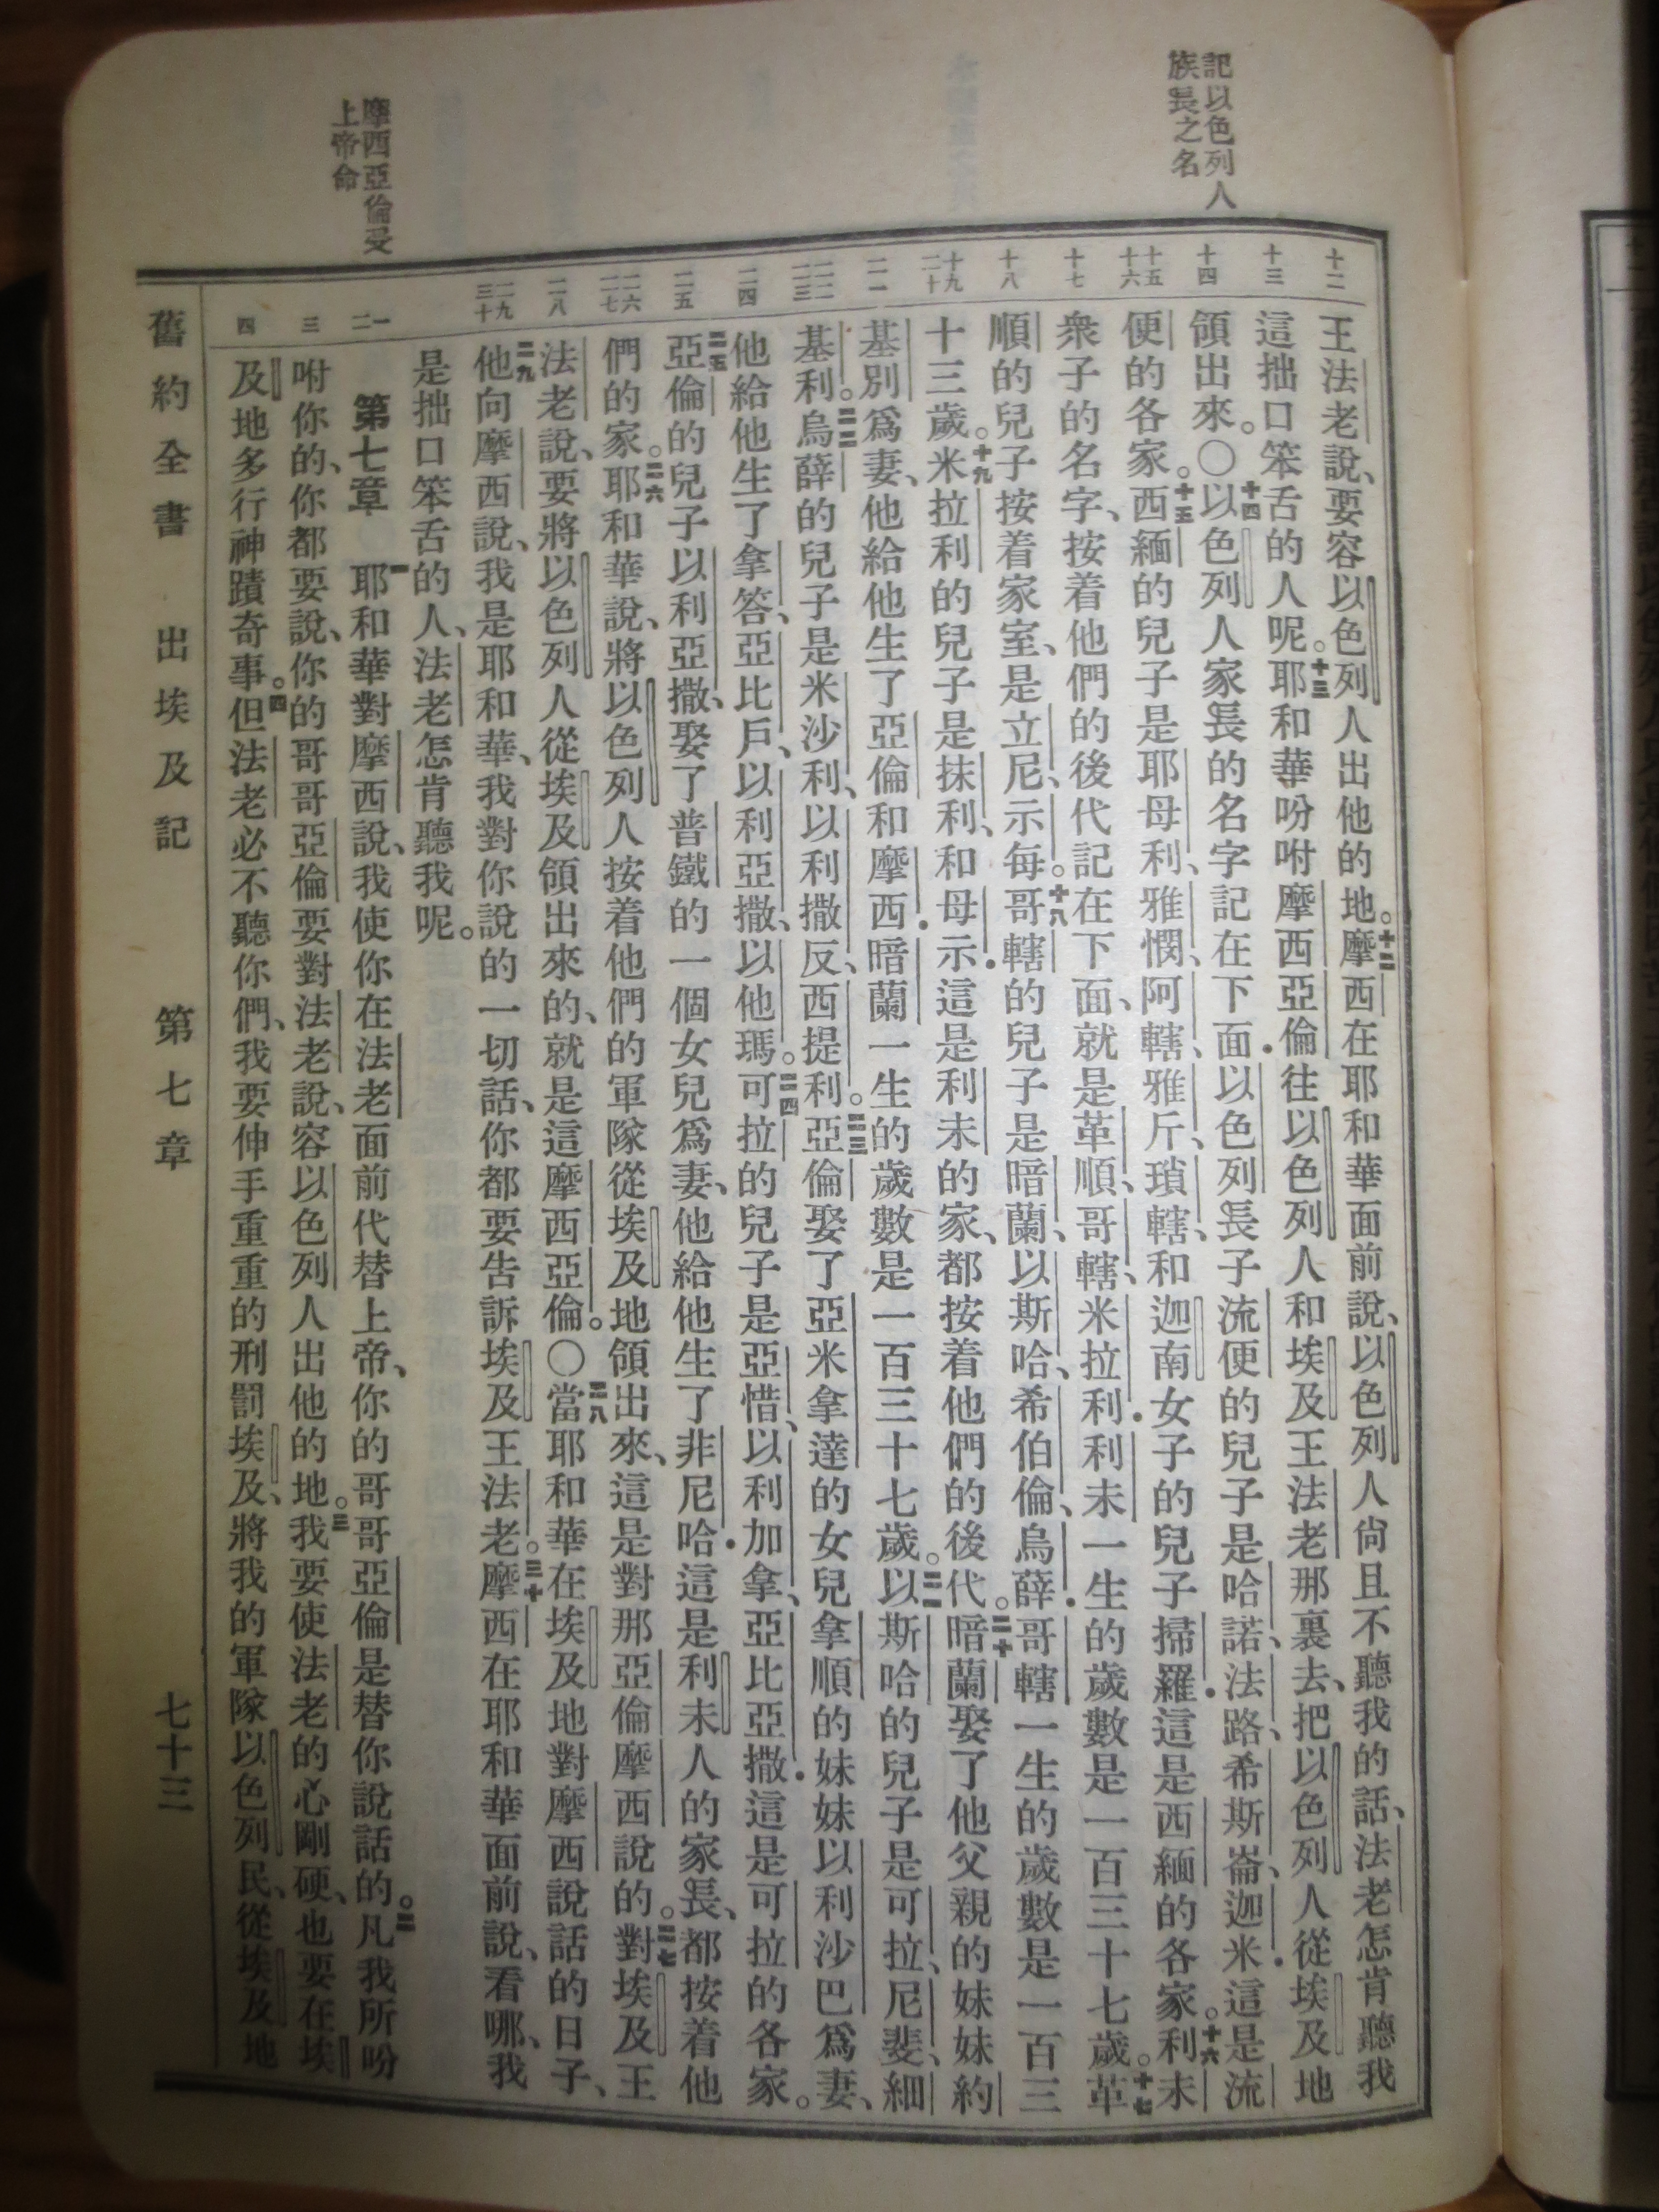 記以色列人
族長之名
摩西亞倫受
上帝命
十二
十三
十四
十五
十六
十七
十八
十九
二十
二一
二二
二三
二四
二五
二六
二七
二八
二九
三十
一
二
三
四
王法老說、要容以色列人出他的地。十二摩西在耶和華面前說、以色列人尙且不聽我的話、法老怎肯聽我
這拙口笨舌的人呢。十三耶和華吩咐摩西亞倫往以色列人和埃及王法老那裏去、把以色列人從埃及地
領出來。○十四以色列人家長的名字記在下面．以色列長子流便的兒子是哈諾、法路、希斯崙、迦米．這是流
便的各家。十五西緬的兒子是耶母利、雅憫、阿轄、雅斤、瑣轄、和迦南女子的兒子掃羅．這是西緬的各家。十六利未
衆子的名字、按着他們的後代記在下面、就是革順、哥轄、米拉利．利未一生的歲數是一百三十七歲。十七革
順的兒子按着家室、是立尼、示每。十八哥轄的兒子是暗蘭、以斯哈、希伯倫、烏薛．哥轄一生的歲數是一百三
十三歲。十九米拉利的兒子是抹利、和母示．這是利未的家、都按着他們的後代。二十暗蘭娶了他父親的妹妹約
基別爲妻、他給他生了亞倫和摩西．暗蘭一生的歲數是一百三十七歲。二一以斯哈的兒子是可拉、尼斐、細
基利。二二烏薛的兒子是米沙利、以利撒反、西提利。二三亞倫娶了亞米拿達的女兒拿順的妹妹以利沙巴爲妻、
他給他生了拿答、亞比戶、以利亞撒、以他瑪。二四可拉的兒子是亞惜、以利加拿、亞比亞撒．這是可拉的各家。
二五亞倫的兒子以利亞撒、娶了普鐵的一個女兒爲妻、他給他生了非尼哈．這是利未人的家長、都按着他
們的家。二六耶和華說、將以色列人按着他們的軍隊從埃及地領出來、這是對那亞倫摩西說的。二七對埃及王
法老說、要將以色列人從埃及領出來的、就是這摩西亞倫。○二八當耶和華在埃及地對摩西說話的日子、
二九他向摩西說、我是耶和華、我對你說的一切話、你都要告訴埃及王法老。三十摩西在耶和華面前說、看哪、我
是拙口笨舌的人、法老怎肯聽我呢。
第七章 一耶和華對摩西說、我使你在法老面前代替上帝、你的哥哥亞倫是替你說話的。二凡我所吩
咐你的、你都要說、你的哥哥亞倫要對法老說、容以色列人出他的地。三我要使法老的心剛硬、也要在埃
及地多行神蹟奇事。四但法老必不聽你們、我要伸手重重的刑罰埃及、將我的軍隊以色列民、從埃及地
舊約全書 出埃及記 第七章 七十三